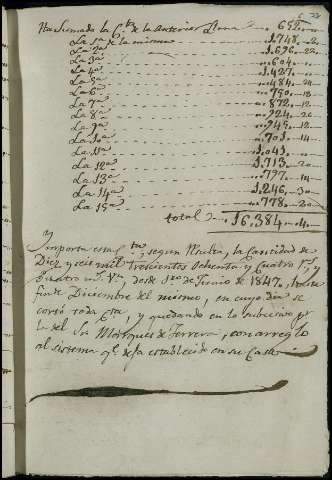 Ha sumado la C.ta de la anterior Llana 658
La 1.a de la misma 1.748
La 2.a 1.696.. 22
La 3.a 604
La 4.a 1.427
La 5.a 484.. 24
La 6.a 750.. 18
La 7.a 872.. 12
La 8.a 924.. 26
La 9.a 945.. 12
La 10.a 701.. 14
La 11.a 1.041
La 12.a 1.713.. 20
La 13.a 797.. 14
La 14.a 1.246.. 30
La 15.a 778.. 20
total 16,384.. 4
Importa esta C.ta, segun resulta, la Cantidad de
Diez y seis mil Trescientos Ochenta y Cuatro r.s, y
Cuatro m.s V.n, desde 1.ro de Junio de 1847, hasta
fin de Diciembre del mismo, en cuyo dia se
cortó toda C.ta, y quedando en lo subcesivo p.r
la del Sr Marques de Ferrera, con arreglo
al sistema q.e deja establecido en su Casa